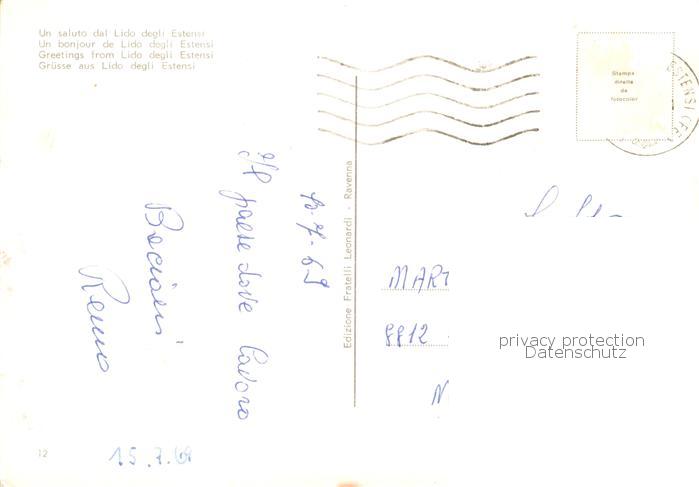 Un saluto dal Lido degli Estensi
Un bonjour de Lido degli Estensi
Greetings from Lido degli Estensi
Grüsse aus Lido degli Estensi
Stampa
diretta
da
fotocolor
ESTENSI (FE)
Edizione Fratelli Leonardi - Ravenna
Il paese dove lavoro
Bacioni
Remo
MART
8812
N
privacy protection
Datenschutz
12
15.7.68